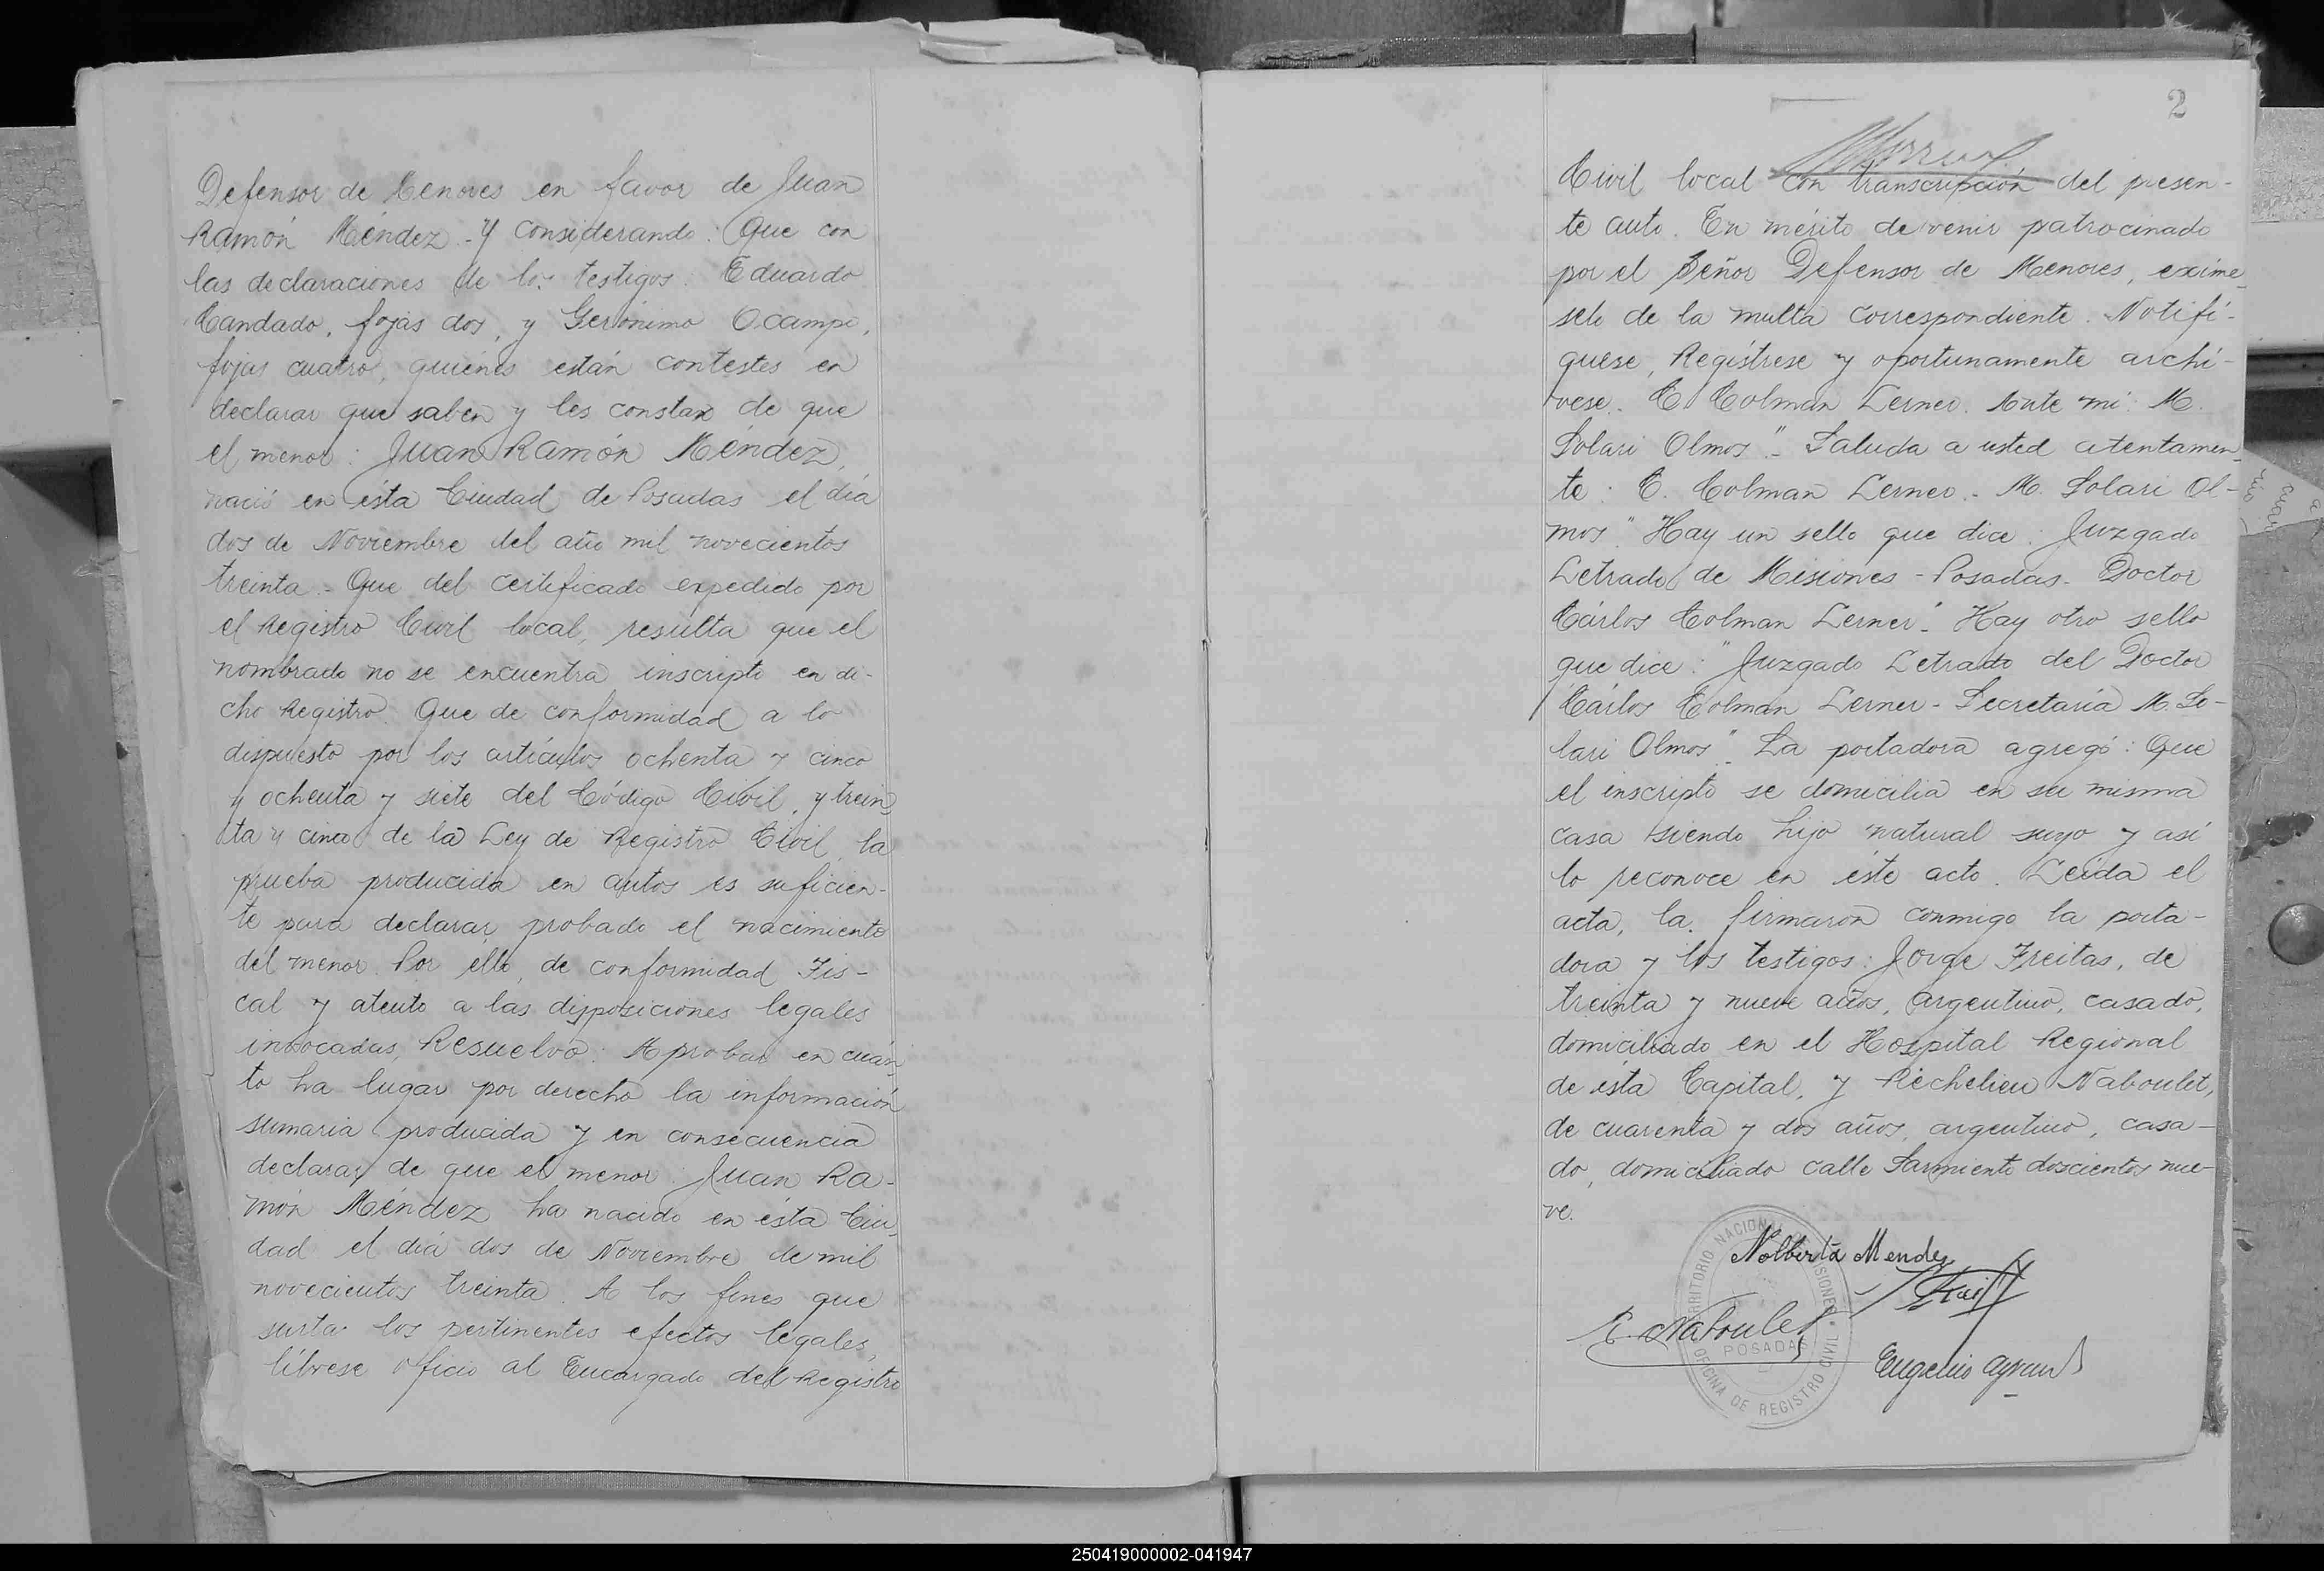 Defensor de Menores en favor de Juan
Ramón Méndez.- Y Considerando: Que con
las declaraciones de los testigos: Eduardo
Candado, fojas dos, y Gerónimo Ocampo,
fojas cuatro, quienes están contestes en
declarar que saben y les constan de que
el menor: Juan Ramón Méndez,
nació en ésta Ciudad de Posadas el día
dos de Noviembre del año mil novecientos
treinta.- Que del certificado expedido por
el Registro Civil local, resulta que el
nombrado no se encuentra inscripto en di-
cho Registro. Que de conformidad a lo
dispuesto por los artículos ochenta y cinco
y ochenta y siete del Código Civil, y trein
ta y cinco de la Ley de Registro Civil, la
prueba producida en autos es suficien-
te para declarar probado el nacimiento
del menor. Por ello, de conformidad Fis-
cal y atento a las disposiciones legales
invocadas, Resuelvo: Aprobar en cuán
to ha lugar por derecho la información
sumaria producida y en consecuencia
declarar de que el menor: Juan Ra-
món Méndez ha nacido en ésta Ciu
dad el día dos de Noviembre de mil
novecientos treinta. A los fines que
surta los pertinentes efectos legales,
líbrese oficio al Encargado del Registro
2
Civil local con transcripción del presen-
te auto. En mérito de venir patrocinado
por el Señor Defensor de Menores, exíme
sele de la multa correspondiente. Notifí-
quese, Regístrese y oportunamente archí-
vese.. C. Colman Lerner. Ante mí: M.
Solari Olmos".- Saluda a usted atentamen
te: C. Colman Lerner.- M. Solari Ol-
mos." Hay un sello que dice: Juzgado
Letrado de Misiones - Posadas - Doctor
Cárlos Colman Lerner".- Hay otro sello
que dice: "Juzgado Letrado del Doctor
Cárlos Colman Lerner - Secretaría M. So-
lari Olmos".- La portadora agregó: Que
el inscripto se domicilia en su misma
casa siendo hijo natural suyo y así
lo reconoce en éste acto. Leída el
acta, la firmaron conmigo la porta-
dora y los testigos: Jorge Freitas, de
treinta y nueve años, argentino, casado,
domiciliado en el Hospital Regional
de ésta Capital, y Richelieu Naboulet,
de cuarenta y dos años, argentino, casa-
do, domiciliado calle Sarmiento doscientos nue-
ve.
Nolberta Mendez
R. Naboulet
Eugenio
TERRITORIO NACIONAL DE MISIONES
OFICINA DE REGISTRO CIVIL
POSADAS
250419000002-041947